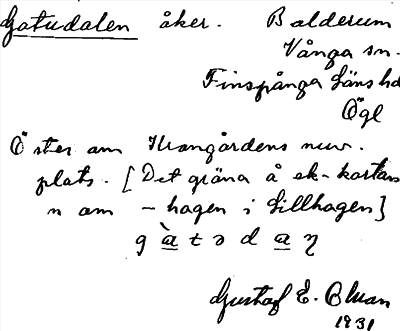 Gatudalen åker. Balderum
Vånga sn.
Finspånga läns hd
Ögl
Öster om Krongårdens nuv.
plats. [Det gröna å ek-kartan
n om - hagen i Lillhagen]
g ὰ t ə d a ŋ
Gustaf E. Blman
1931